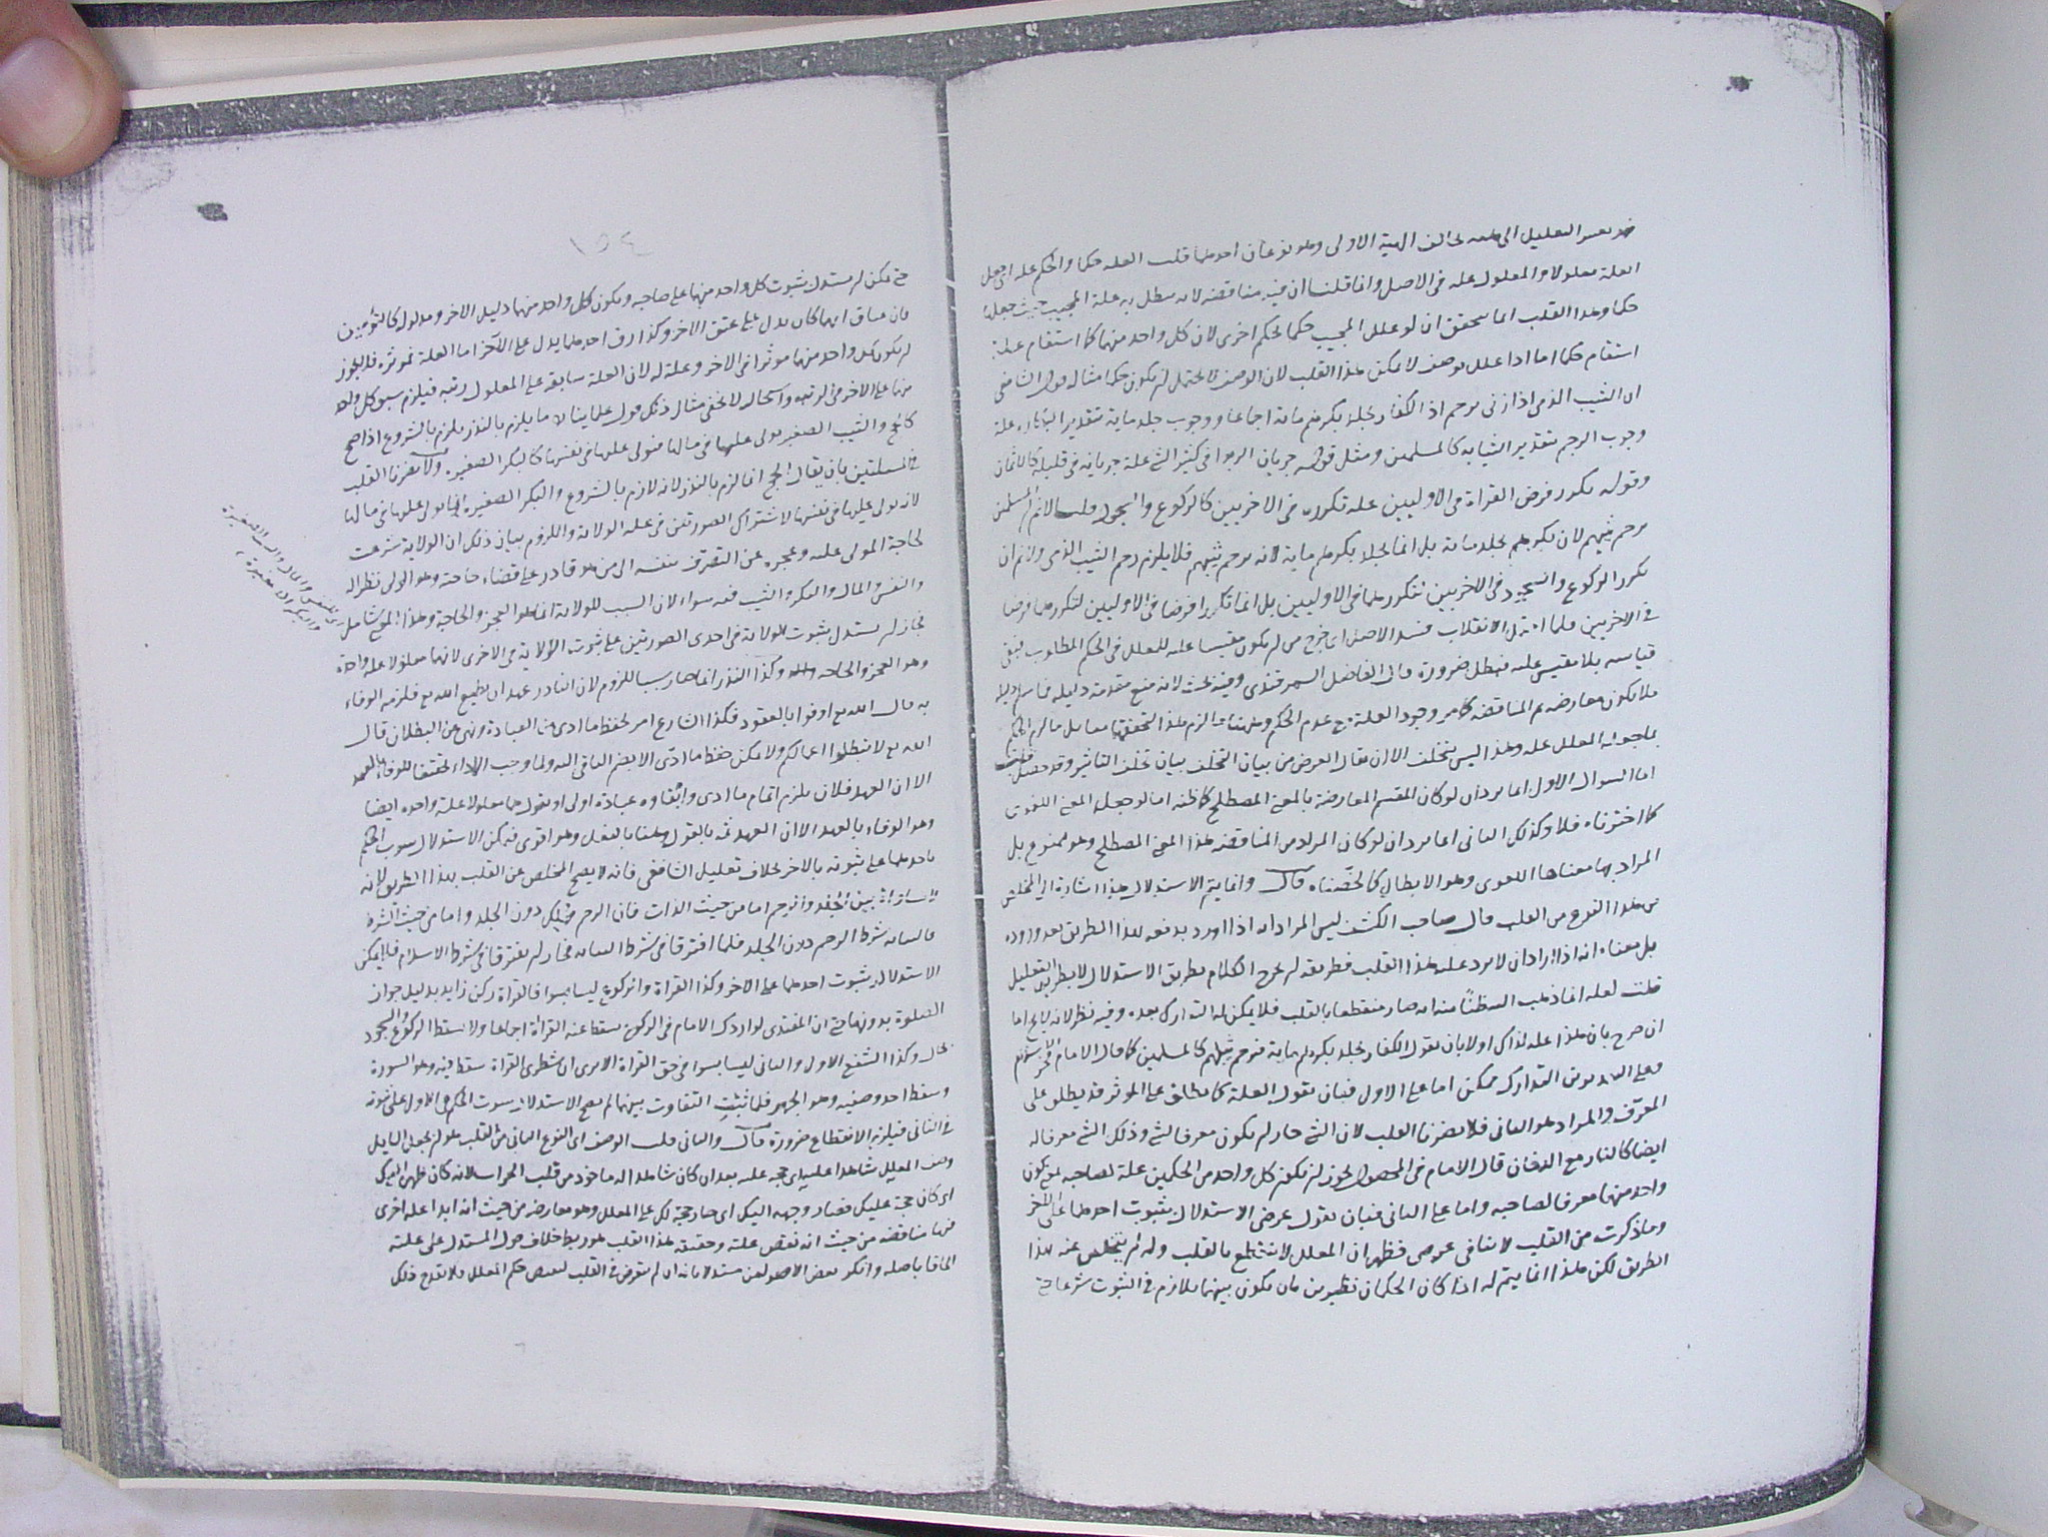 العلة معلولا والمعلول علة فى الاصل وانما قلنا ان فيه مناقضة لانه يبطل به علة المجيب حيث جعلها
حكما وهذا القلب انما يتحقق ان لو علل المجيب حكما بحكم اخرى لان كل واحد منهما كما استقام علة
استقام حكما اما اذا علل بوصف لا يمكن هذا القلب لان الوصف لا يحتمل ان يكون حكما مثاله قول الشافعى
ان الثيب الذمى اذا زنى يرجم اذ الكفار يجلد بكرهم مائة اجماعا ووجوب جلد مائة بتقدير البكارة علة
وجوب الرجم بتقدير الثيابه كالمسلمين ومثل قوله جريان الربوا فى كثير الشئ علة جريانه فى قليله كالاثمان
وقوله تكرر فرض القراة فى الاوليين علة تكرره فى الاخريين كالركوع والسجود قلنا لا نم ان المسلمين
يرجم ثيبهم لان بكرهم يجلد مائة بل انما يجلد بكرهم ماية لانه يرجم ثيبهم فلا يلزم رجم الثيب الذمى ولا نم ان
تكرر الركوع والسجود فى الاخريين لتكررهما فى الاوليين بل انما تكررا فرضا فى الاوليين لتكررهما فرضا
فى الاخريين فلما الانقلاب فسد الاصل اى خرج من ان يكون مقيسا عليه للمعلل فى الحكم المطلوب فبقى
قياسه بلا مقيس عليه فبطل ضرورة قال الفاضل السمرقندى وفيه بحث لانه منع مقدمة دليله
فلا يكون معارضه ثم المناقضة كما مر وجود العلة مع عدم الحكم وههنا لزم هذا التحقق
بما جعله المعلل علة وهذا ليس بتخلف الا ان يقال الغرض من بيان التخلف بيان تخلف التاثير وقد حصل قلت
اما السوال الاول انما يرد ان لو كان المقسم المعارضة بالمعنى المصطلح كما ظنه اما لو جعل المعنى اللغوى
كما اخترناه فلا وكذلك الثانى انما يرد ان لو كان المراد من المناقضة هذا المعنى المصطلح وهو ممنوع بل
المراد بها معناها اللغوى وهو الابطال كما لخصناه قال وانما يتم الاستدلال هذا اشارة الى المخلص
من هذا النوع من القلب قال صاحب الكشف ليس المراد انه اذا اورد يدفعه بهذا الطريق بعد وروده
بل معناه انه اذا اراد ان لا يرد عليه هذا القلب فطريقه ان يخرج الكلام بطريق الاستدلال لا بطريق التعليل
قلت لعله انما ذهب اليه ظنًا منه انه صار منقطعا بالقلب فلا يمكن له التدارك بعده وفيه نظر لانه لا يخ اما
ان صرح بان هذا علة لذاك اولا بان يقول الكفار يجلد بكرهم ماية فيرجم ثيبهم كالمسلمين كما قال الامام فخر الاسلام
وعلى التقديرين التدارك ممكن اما على الاول فبان يقول العلة كما يطلق على الموثر قد يطلق على
المعرّف والمراد هو الثانى فلا يضرنا القلب لان الشئ جاز ان يكون معرفا لشئ وذلك الشئ معرفا له
ايضا كالنار مع الدخان قال الامام فى المحصول يجوز ان يكون كل واحد من الحكمين علة لصاحبه بمعنى كون
واحد منهما معرفا لصاحبه واما على الثانى فبان يقول غرضى الاستدلال بثبوت احدهما على الاخر
وما ذكرت من القلب لا ينافى غرضى فظهر ان المعلل لا ينقطع بالقلب وله ان يتخلص عنه بهذا
الطريق لكن هذا انما يتم له اذا كان الحكمان نظيرين بان يكون بينهما تلازم فى الثبوت شرعا حتى
١٥٤
حتى يمكن ان يستدل بثبوت كل واحد منهما على صاحبه ويكون كل واحد منهما دليل الاخر ومدلوله كالتوءمين
فان عتاق ايهما كان يدل على عتق الاخر وكذا رق احدهما يدل على الآخر اما العلة فموثرة فلا يجوز
ان يكون كل واحد منهما موثرا فى الاخر وعلة له لان العلة سابقة على المعلول رتبة فيلزم سبق كل واحد
منهما على الاخر فى الرتبة واستحالته لا تخفى مثال ذلك قول علماينا لا ما يلزم بالنذر يلزم بالشروع اذا صح
كالحج والثيب الصغير يولى عليها فى مالها فيولى عليها فى نفسها كالبكر الصغيرة ولا يضرنا القلب
فى المسئلتين بان يقال الحج انما لزم بالنذر لانه لازم بالشروع والبكر الصغيرة انما يولى عليها فى مالها
لانه يولى عليها فى نفسها لاشتراك الصورتين فى علة الولاية واللزوم بيان ذلك ان الولاية شرعت
لحاجة المولى عليه وعجزه عن التصرف بنفسه الى من هو قادر على قضاء حاجته وهو الولى نظرا له
والنفس والمال والبكر والثيب فيه سواء لان السبب للولاية انما هو العجز والحاجة وهذا المعنى شامل
فجاز ان يستدل بثبوت الولاية فى احدى الصورتين على ثبوت الولاية فى الاخرى لانهما معلولا علة واحدة
وهو العجز والحاجة وكذا النذر انما صار سببا للزوم لان الناذر عهد ان يطيع الله تع فلزمه الوفاء
به قال الله تع اوفوا بالعقود فكذا الشارع امر بحفظ ما ادى من العبادة ونهى عن البطلان قال
الله تع لا تبطلوا اعمالكم ولا يمكن حفظ ما ادّى الا بضم الباقى اليه ولما وجب الاداء تحقيقا للوفاء بالعهد
الا ان العهد فلان يلزم اتمام ما ادى وابقاوه عبادة اولى او نقول هما معلولا علة واحدة ايضا
وهو الوفاء بالعهد الا ان العهد ثمه بالقول وههنا بالفعل وهو اقوى فيمكن الاستدلال بثبوت الحكم
باحدهما على ثبوته بالاخر بخلاف تعليل الشافعى فانه لا يصح المخلص عن القلب بهذا الطريق لانه
لا مساواة بين الجلد والرجم اما من حيث الذات فان الرجم مهلك دون الجلد واما من حيث الشرط
فالثيابة شرط الرجم دون الجلد فلما افترقا فى شرط الثيابة فجاز ان يفترقا فى شرط الاسلام فلا يمكن
الاستدلال بثبوت احدهما على الاخر وكذا القراة والركوع ليسا بسوا فالقراة ركن زايد بدليل جواز
الصلوة بدونها حتى ان المقتدى لو ادرك الامام فى الركوع سقط عنه القراة اجماعا ولا يسقط الركوع والسجود
بحال وكذا الشفع الاول والثانى ليسا بسوا فى حق القراة الا يرى ان شطرى القراة سقط فيه وهو السورة
وسقط احد وصفيه وهو الجهر فلما ثبتت التفاوت بينهما لم يصح الاستدلال بثبوت الحكم فى الاول على ثبوته
فى الثانى فيلزم الانقطاع ضرورة قال والثانى قلب الوصف اى النوع الثانى من القلب هو ان يجعل السايل
وصف المعلل شاهدا عليه اى حجة عليه بعد ان كان شاهدا له ماخوذ من قلب الجراب لانه كان ظهره اليك
اى كان حجة عليك فصار وجهه اليك اى صار حجة لك على المعلل وهو معارضة من حيث انه ابدا علة اخرى
فيها مناقضة من حيث انه نقض علته وحقيقة هذا القلب هو ربط خلاف قول المستدل على علته
الحاقا باصله وانكر بعض الاصوليين مستدلا بانه ان لم يتعرض فى القلب لنقيض حكم المعلل فلا يقدح فلك
اى للنفس والمال والثيب الصغيرة
والبكر الصغيرة